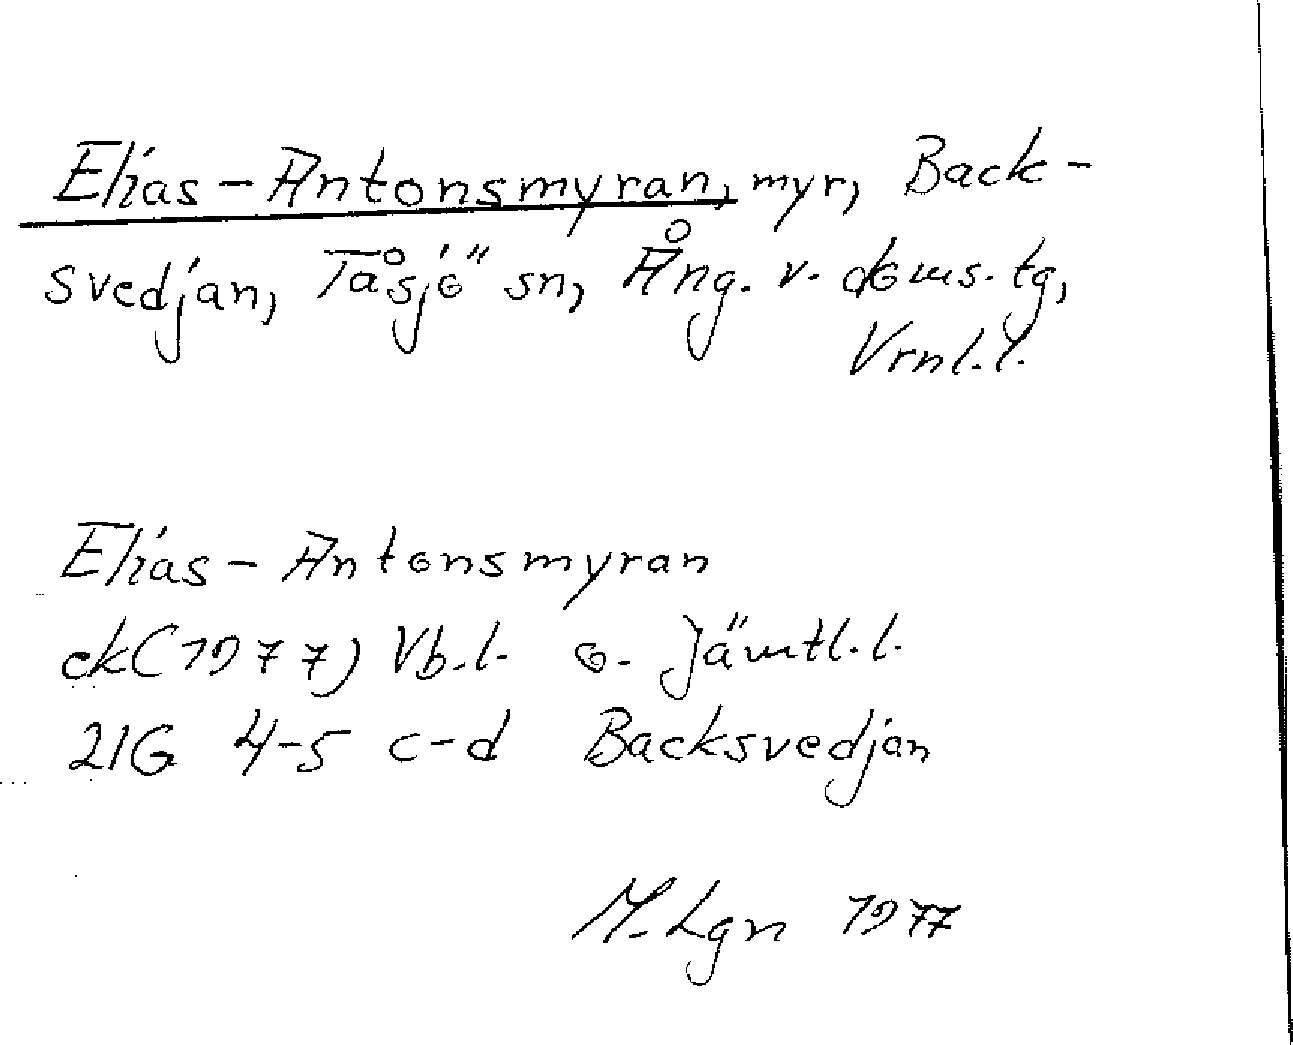 Elias-Antonsmyran, myr, Back-
svedjan, Tåsjö sn, Ång. v. doms. tg,
Vrnl.l.
Elias-Antonsmyran
ek(1977) Vb.l. o. Jämtl.l.
21G 4-5 c-d Backsvedjan
M. Lgn 1977